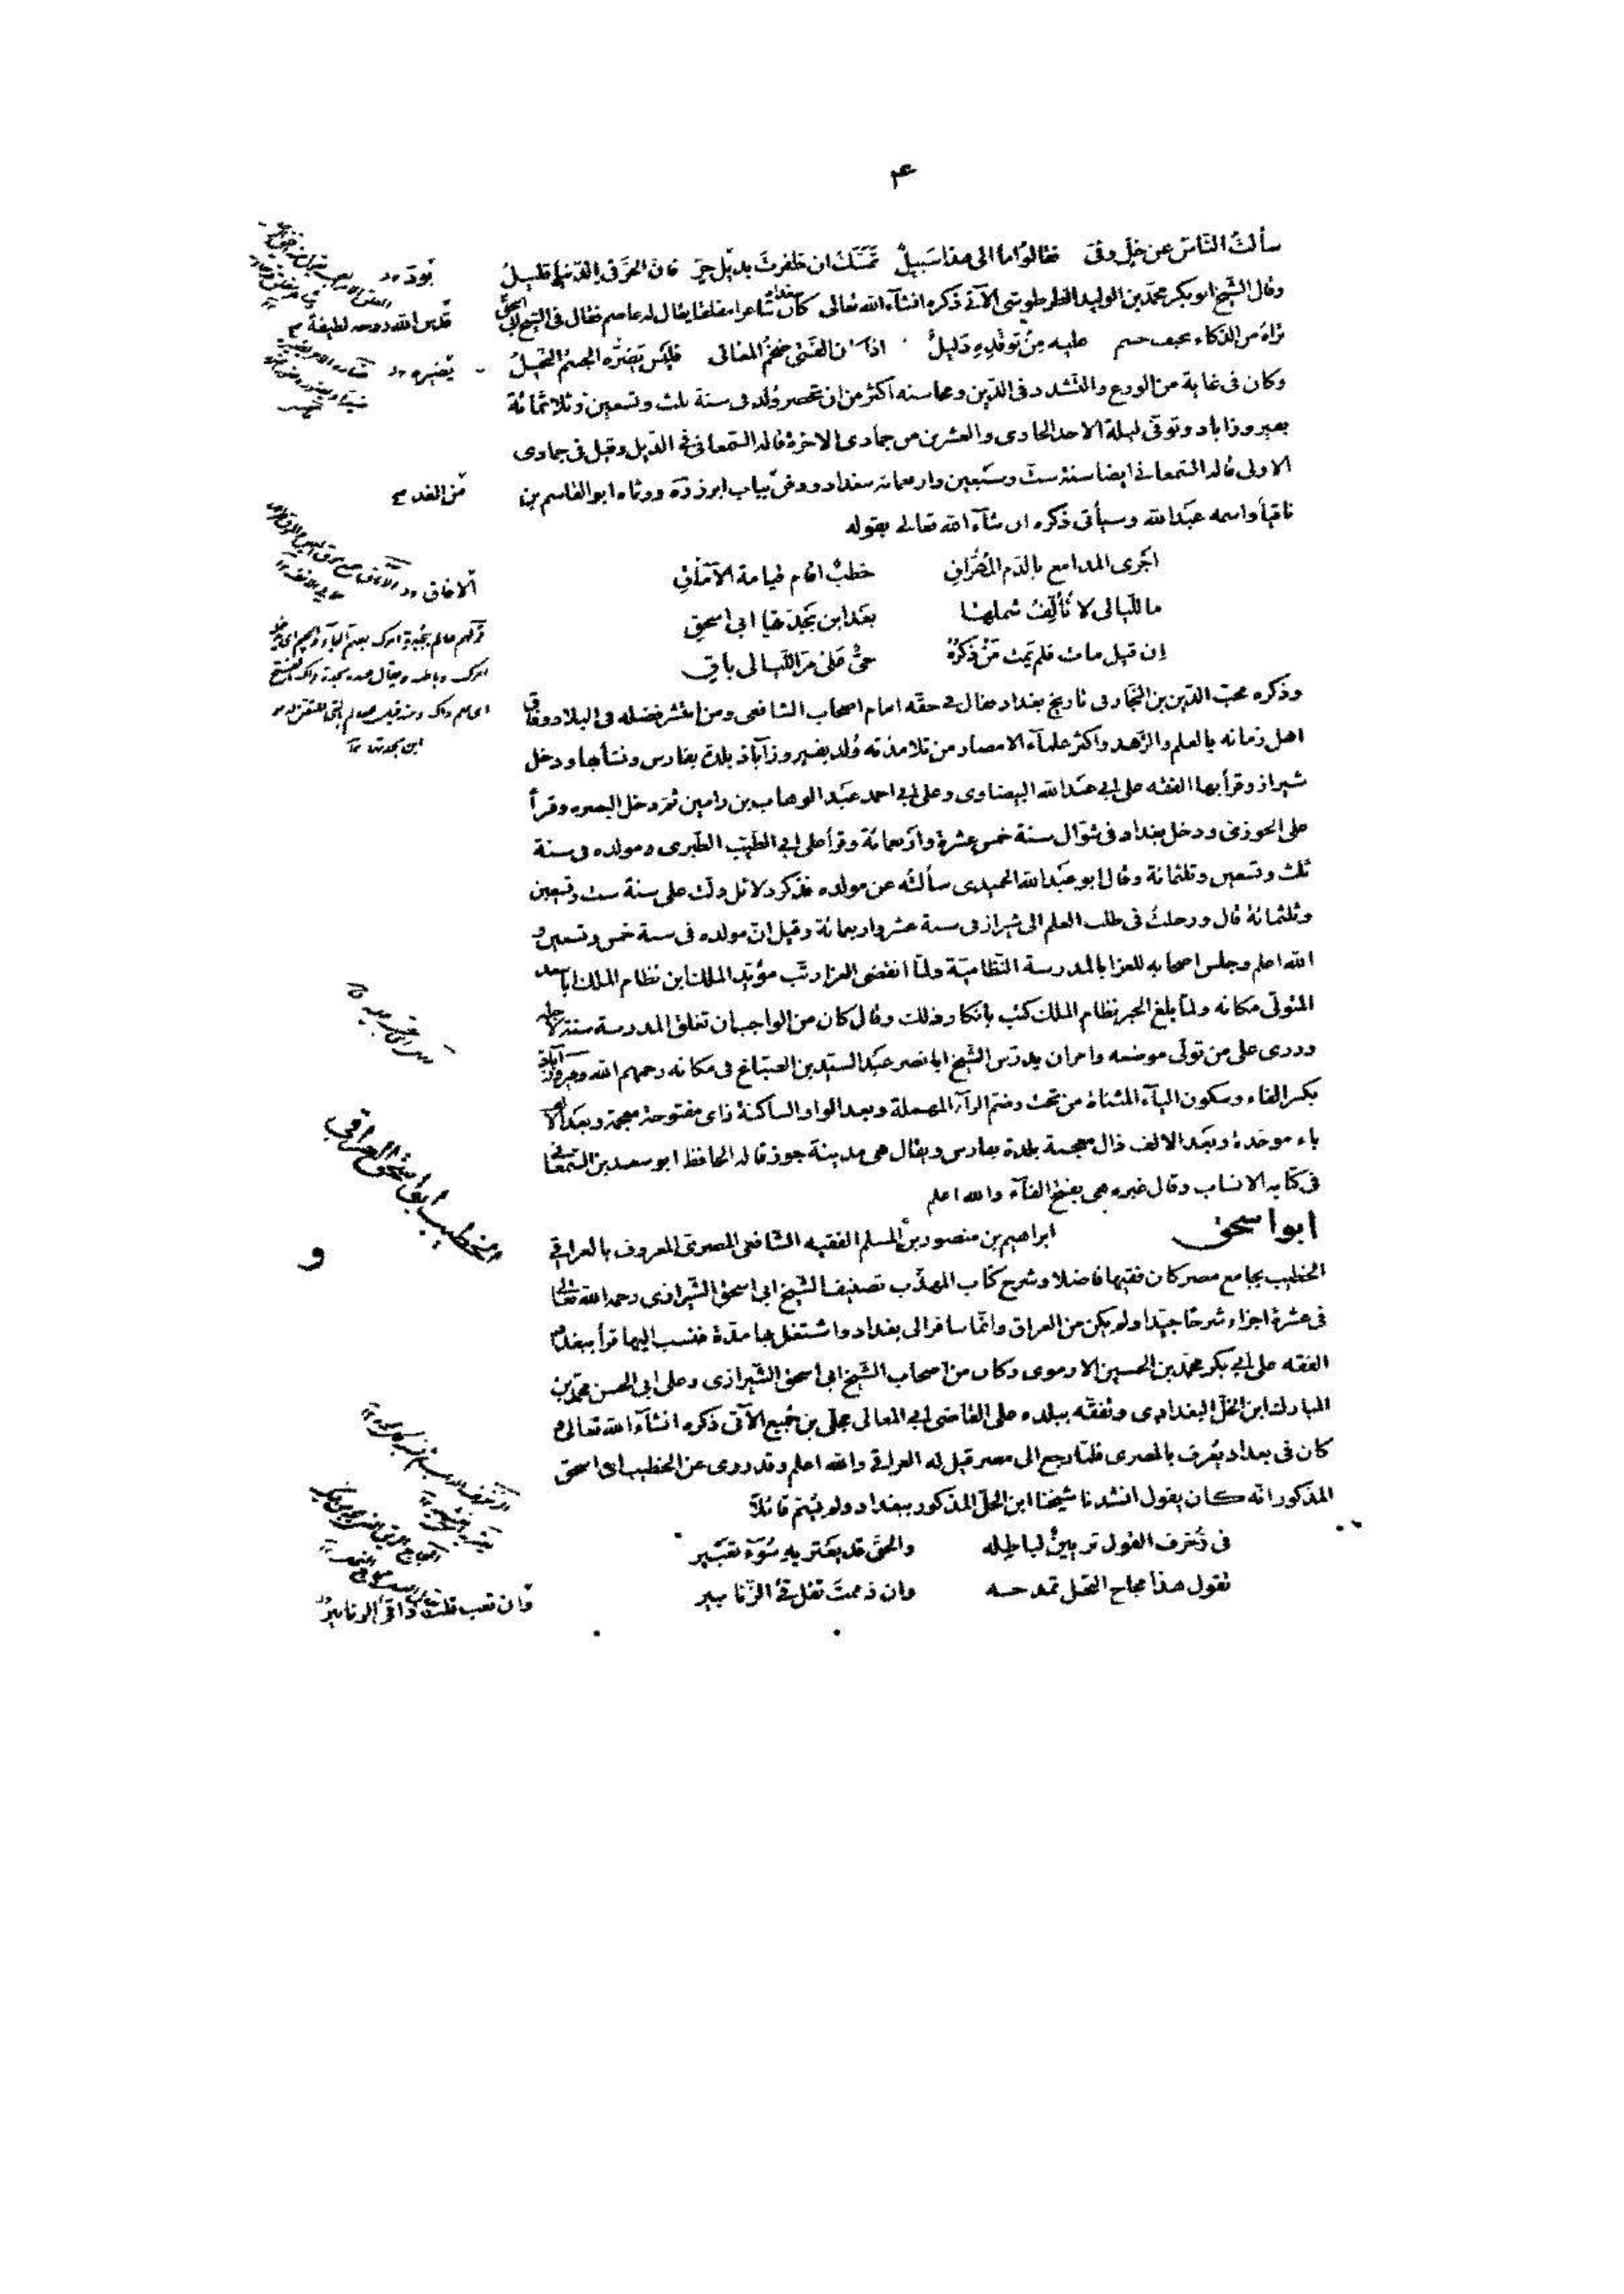 ۴
سألت النّاس عن خلّ وفىّ فقالوا ما الى هذا سبيل تمسّك ان ظفرت بذيل حرّ فانّ الحرّ فى الدّنيا قليل
وقال الشّيخ ابو بكر محمّد بن الوليد الطرطوشى الآتى ذكره انشآء الله تعالى كان ببغداد شاعرا مفلقا يقال له عاصم فقال فى الشيخ ابى اسحق
تراه من الذكاء نحيف جسم عليه من توقّده دليل اذا كان الفتى ضخم المعالى فليس يضرّه الجسم النّحيل
وكان فى غاية من الورع والتّشدد فى الدّين ومحاسنه اكثر من ان تحصر ولد فى سنة ثلث وتسعين وثلاثمائة
بفيروزاباد وتوفّى ليلة الاحد الحادى والعشرين من جمادى الاخرة قاله السّمعانى فى الذّيل وقيل فى جمادى
الاولى قاله السّمعانى ايضا سنة ستّ وسبعين واربعمائة ببغداد ودفن بباب ابرز ورثاه ابو القاسم بن
ناقيا واسمه عبد الله وسيأتى ذكره ان شآء الله تعالى بقوله
اجرى المدامع بالدّم المهراق خطب اقام قيامة الآماق
ما للّيالى لا تألّف شملها بعد ابن بجدتها ابى اسحق
ان قيل مات فلم يمت من ذكره حىّ على مرّ اللّيالى باقى
وذكره محبّ الدّين بن النجّار فى تاريخ بغداد فقال فى حقّه امام اصحاب الشافعى ومن انتشر فضله فى البلاد وفاق
اهل زمانه بالعلم والزّهد واكثر علمآء الامصار من تلامذته ولد بفيروزآباذ بلدة بفارس ونشأ بها ودخل
شيراز وقرأ بها الفقه على ابى عبد الله البيضاوى وعلى ابى احمد عبد الوهاب بن رامين ثم دخل البصره وقرأ
على الجوزى ودخل بغداد فى شوّال سنة خمس عشرة واربعمائة وقرأ على ابى الطيّب الطّبرى ومولده فى سنة
ثلث وتسعين وثلثمائة وقال ابو عبد الله الحميدى سألته عن مولده فذكر دلائل دلّت على سنة ست وتسعين
وثلثمائة قال ورحلت فى طلب العلم الى شيراز فى سنة عشر واربعمائة وقيل انّ مولده فى سنة خمس وتسعين و
الله اعلم وجلس اصحابه للعزا بالمدرسة النّظاميّة ولمّا انقضى العزا رتّب مؤيّد الملك ابن نظام الملك ابا سعد
المتولّى مكانه ولمّا بلغ الخبر نظام الملك كتب بانكار ذلك وقال كان من الواجب ان تغلق المدرسة سنة لاجله
وزرى على من تولّى موضعه وامر ان يدرّس الشّيخ ابا نصر عبد السيّد بن الصبّاغ فى مكانه رحمهم الله وفيروزآباذ
بكسر الفاء وسكون اليآء المثناة من تحت وضم الرآء المهملة وبعد الواو الساكنة زاى مفتوحة معجمة وبعد الالف
باء موحّدة وبعد الالف ذال معجمة بلدة بفارس ويقال هى مدينة جور قاله الحافظ ابو سعد بن السّمعانى
فى كتابه الانساب وقال غيره هى بفتح الفآء والله اعلم
ابو اسحق ابراهيم بن منصور بن المسلم الفقيه الشافعى المصرى المعروف بالعراقى
الخطيب بجامع مصر كان فقيها فاضلا وشرح كتاب المهذّب تصنيف الشّيخ ابى اسحق الشّيرازى رحمه الله تعالى
فى عشرة اجزاء شرحا جيّدا ولم يكن من العراق وانّما سافر الى بغداد واشتغل بها مدّة فنسب اليها قرأ ببغداد
الفقه على ابى بكر محمّد بن الحسين الارموى وكان من اصحاب الشّيخ ابى اسحق الشّيرازى وعلى ابى الحسن محمّد بن
المبارك ابن الخلّ البغدادى وتفقّه ببلده على القاضى ابى المعالى مجلّى بن جميع الآتى ذكره انشآء الله تعالى و
كان فى بغداد يعرف بالمصرى فلمّا رجع الى مصر قيل له العراقى والله اعلم وقد روى عن الخطيب ابى اسحق
المذكور انّه كان يقول انشدنا شيخنا ابن الخلّ المذكور ببغداد ولم يسمّ قائلا
فى زخرف القول تزيين لباطله والحقّ قد يعتريه سوء تعبير
تقول هذا مجاج النحل تمدحه وان ذممت تقل قئ الزّنابير
بودّ
قدّس الله روحه لطيفة
يضيره
من الغد
الافاق
الخطيب ابو اسحق العراقى
و
وان تعب قلت ذا قئ الزنابير